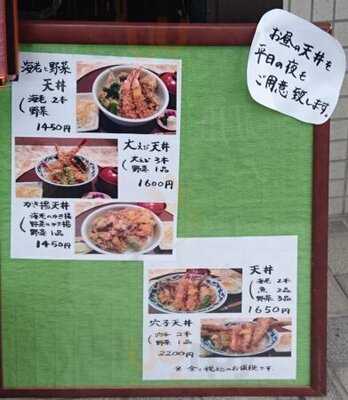 お昼の天丼を
平日の夜も
ご用意致します。
海老と野菜
天丼
海老 2本
野菜
1450円
大えび天丼
大えび 3本
野菜 1品
1600円
かき揚天丼
海老のかき揚
野菜のかき揚
野菜 1品
1450円
天丼
海老 2本
魚 2品
野菜 3品
1650円
穴子天丼
穴子 2本
野菜 1品
2200円